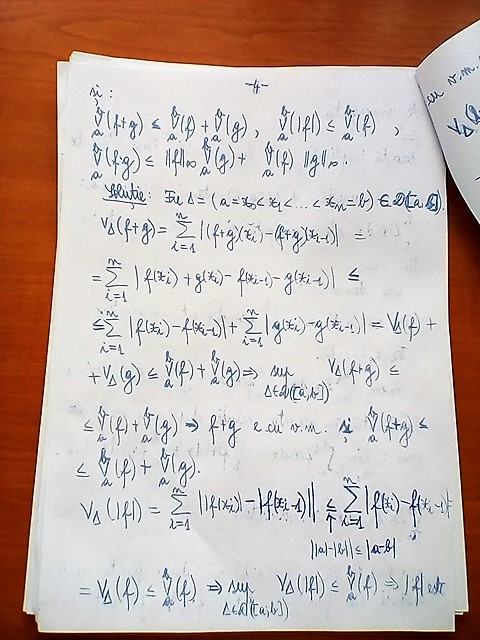 -4-
și :
V_a^b (f+g) ≤ V_a^b (f) + V_a^b (g) , V_a^b |f| ≤ V_a^b (f) ,
V_a^b (f·g) ≤ ||f||∞ V_a^b (g) + V_a^b (f) ||g||∞ .
Soluție: Fie Δ = (a = x₀ < x₁ < ... < xₙ = b) ∈ D([a, b]).
V_Δ (f+g) = Σ_{i=1}^n |(f+g)(x_i) - (f+g)(x_{i-1})| =
= Σ_{i=1}^n | f(x_i) + g(x_i) - f(x_{i-1}) - g(x_{i-1})| ≤
≤ Σ_{i=1}^n |f(x_i) - f(x_{i-1})| + Σ_{i=1}^n | g(x_i) - g(x_{i-1})| = V_Δ(f) +
+ V_Δ(g) ≤ V_a^b (f) + V_a^b (g) ⇒ sup_{Δ∈D([a,b])} V_Δ(f+g) ≤
≤ V_a^b (f) + V_a^b (g) ⇒ f+g e cu v.m. și V_a^b (f+g) ≤
≤ V_a^b (f) + V_a^b (g).
V_Δ (|f|) = Σ_{i=1}^n | |f(x_i)| - |f(x_{i-1})| | ≤ Σ_{i=1}^n |f(x_i) - f(x_{i-1})| =
↑
||a|-|b|| ≤ |a-b|
= V_Δ (f) ≤ V_a^b (f) ⇒ sup_{Δ∈D([a,b])} V_Δ(|f|) ≤ V_a^b (f) ⇒ |f| este
cu v.m.
V_Δ